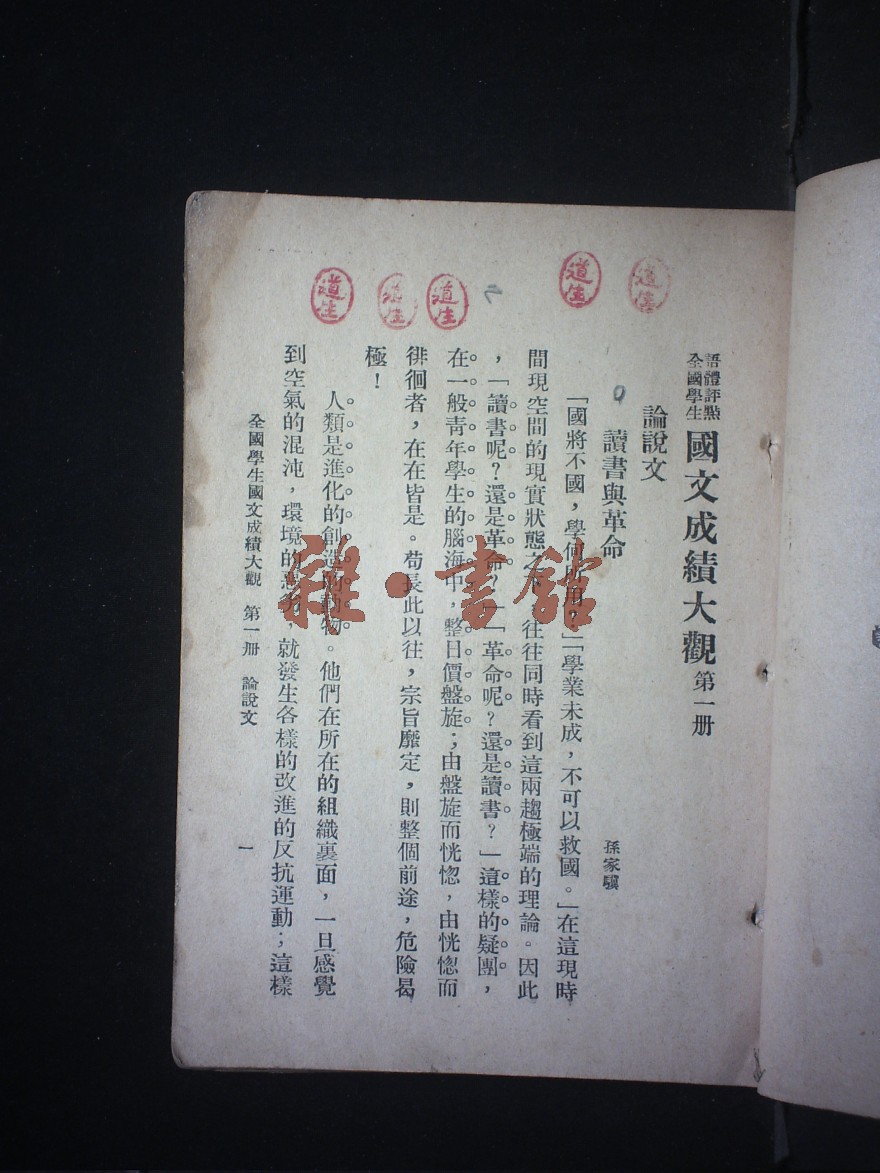 語體評點
全國學生
國文成績大觀 第一册
論說文
讀書與革命
孫家驥
「國將不國，學何所用？」「學業未成，不可以救國。」在這現時
間現空間的現實狀態之下，往往同時看到這兩趨極端的理論。因此
，「讀書呢？還是革命？」「革命呢？還是讀書？」這樣的疑團，
在一般靑年學生的腦海中，整日價盤旋；由盤旋而恍惚，由恍惚而
徘徊者，在在皆是。苟長此以往，宗旨靡定，則整個前途，危險曷
極！
人類是進化的創造的動物。他們在所在的組織裏面，一旦感覺
到空氣的混沌，環境的惡劣，就發生各樣的改進的反抗運動；這樣
全國學生國文成績大觀 第一册 論說文
一
道生
道生
道生
道生
道生
雜·書館